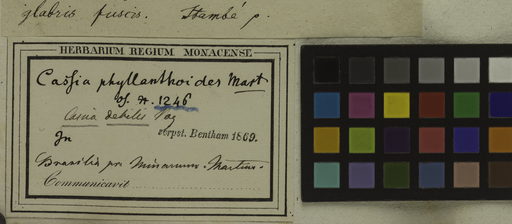 glabris fuscis. Itambé p.
HERBARIUM REGIUM MONACENSE
Cassia phyllanthoides Mart
H. 1246
Casia debilis Vog
In
corpst. Bentham 1869.
Brasilia pr. Minarum. Martius.
Communicavit